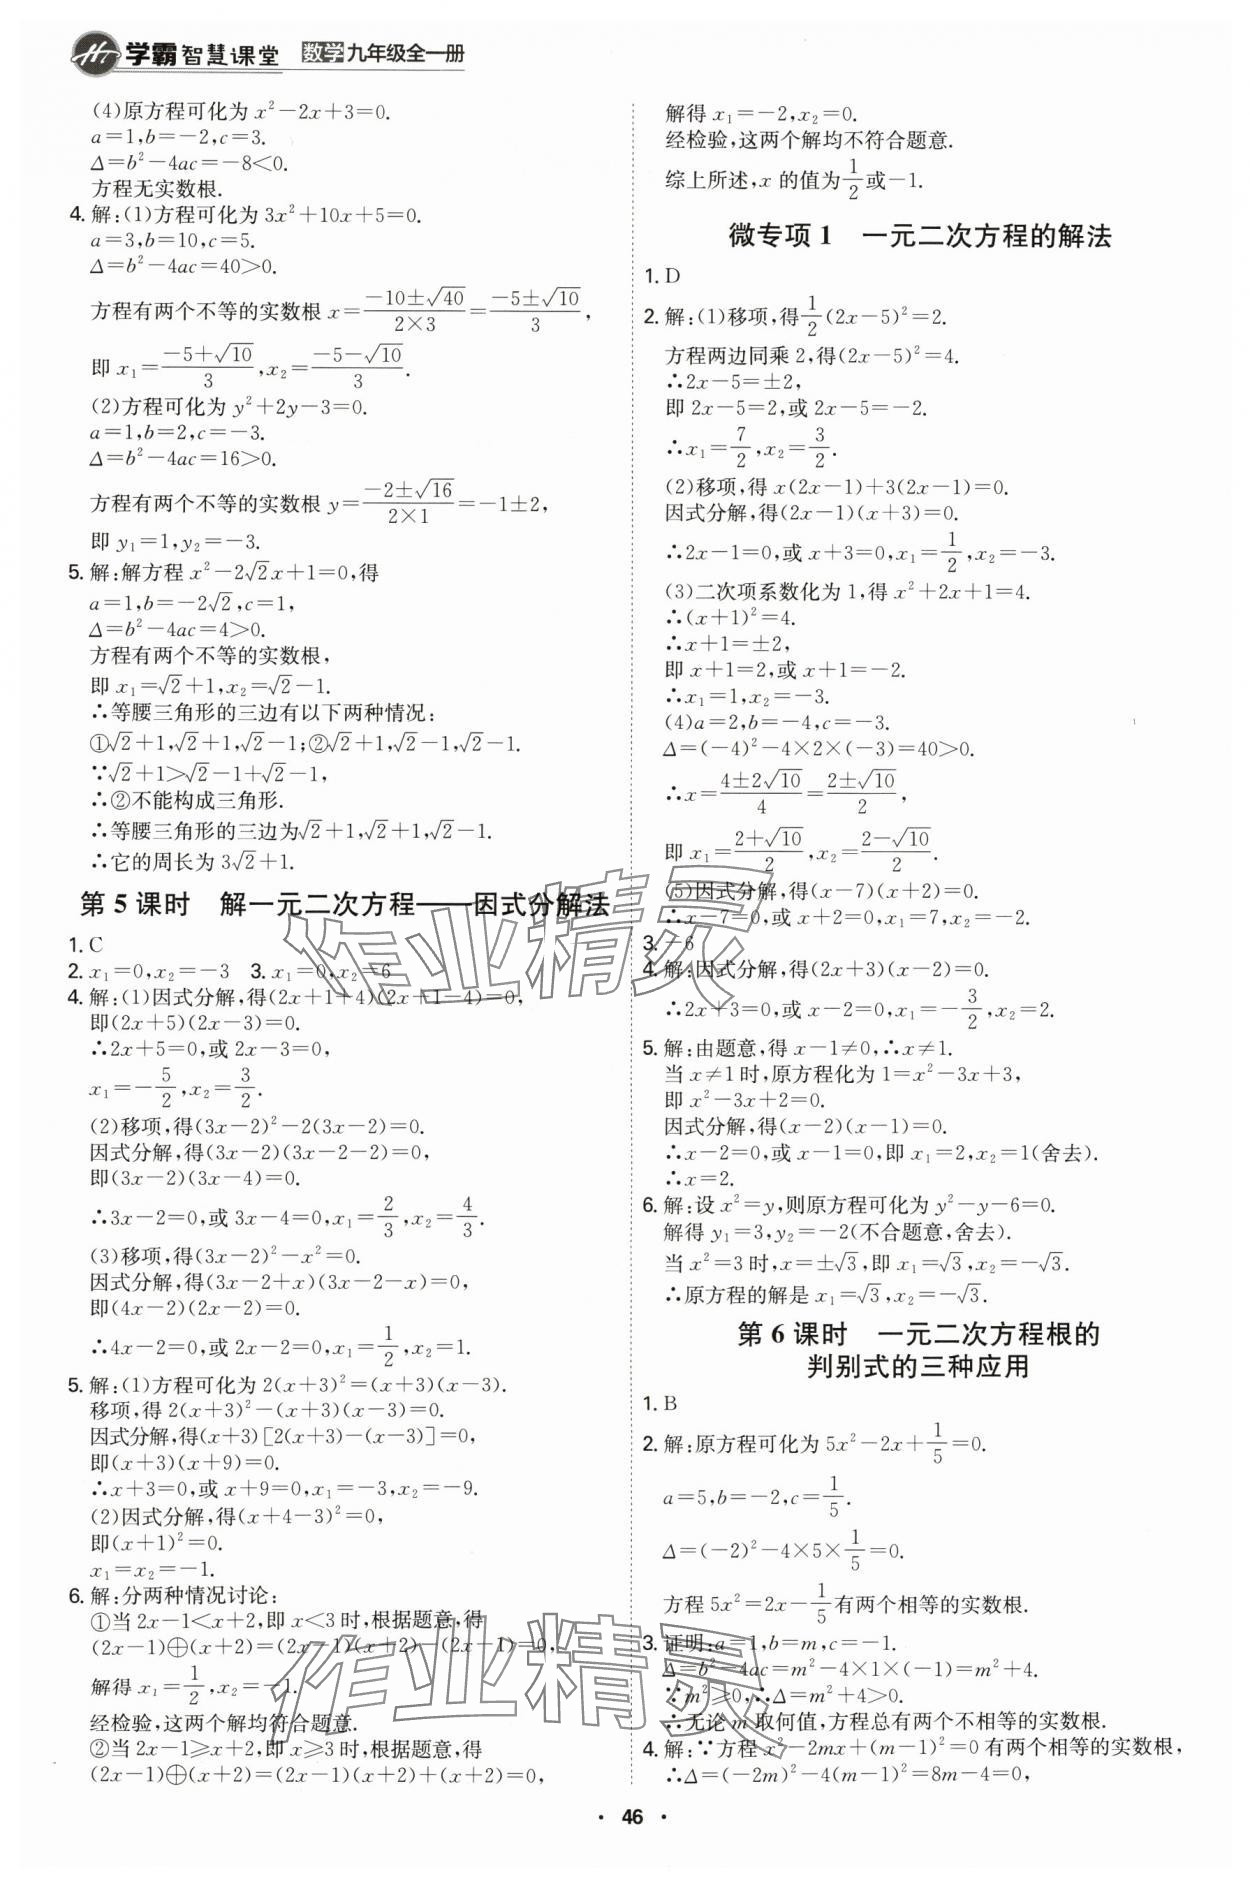 学霸智慧课堂 数学九年级全一册
(4)原方程可化为 x²-2x+3=0.
a=1,b=-2,c=3.
Δ=b²-4ac=-8<0.
方程无实数根.
4. 解:(1)方程可化为 3x²+10x+5=0.
a=3,b=10,c=5.
Δ=b²-4ac=40>0.
方程有两个不等的实数根 x=(-10±√40)/(2×3)=(-5±√10)/3,
即 x₁=(-5+√10)/3,x₂=(-5-√10)/3.
(2)方程可化为 y²+2y-3=0.
a=1,b=2,c=-3.
Δ=b²-4ac=16>0.
方程有两个不等的实数根 y=(-2±√16)/(2×1)=-1±2,
即 y₁=1,y₂=-3.
5. 解:解方程 x²-2√2x+1=0,得
a=1,b=-2√2,c=1,
Δ=b²-4ac=4>0.
方程有两个不等的实数根,
即 x₁=√2+1,x₂=√2-1.
∴等腰三角形的三边有以下两种情况:
①√2+1,√2+1,√2-1;②√2+1,√2-1,√2-1.
∵√2+1>√2-1+√2-1,
∴②不能构成三角形.
∴等腰三角形的三边为√2+1,√2+1,√2-1.
∴它的周长为 3√2+1.
第 5 课时 解一元二次方程——因式分解法
1. C
2. x₁=0,x₂=-3 3. x₁=0,x₂=6
4. 解:(1)因式分解,得(2x+1+4)(2x+1-4)=0,
即(2x+5)(2x-3)=0.
∴2x+5=0,或 2x-3=0,
x₁=-5/2,x₂=3/2.
(2)移项,得(3x-2)²-2(3x-2)=0.
因式分解,得(3x-2)(3x-2-2)=0,
即(3x-2)(3x-4)=0.
∴3x-2=0,或 3x-4=0,x₁=2/3,x₂=4/3.
(3)移项,得(3x-2)²-x²=0.
因式分解,得(3x-2+x)(3x-2-x)=0,
即(4x-2)(2x-2)=0.
∴4x-2=0,或 2x-2=0,x₁=1/2,x₂=1.
5. 解:(1)方程可化为 2(x+3)²=(x+3)(x-3).
移项,得 2(x+3)²-(x+3)(x-3)=0.
因式分解,得(x+3)[2(x+3)-(x-3)]=0,
即(x+3)(x+9)=0.
∴x+3=0,或 x+9=0,x₁=-3,x₂=-9.
(2)因式分解,得(x+4-3)²=0,
即(x+1)²=0.
x₁=x₂=-1.
6. 解:分两种情况讨论:
①当 2x-1<x+2,即 x<3 时,根据题意,得
(2x-1)⊕(x+2)=(2x-1)(x+2)-(2x-1)=0,
解得 x₁=1/2,x₂=-1.
经检验,这两个解均符合题意.
②当 2x-1≥x+2,即 x≥3 时,根据题意,得
(2x-1)⊕(x+2)=(2x-1)(x+2)+(x+2)=0,
解得 x₁=-2,x₂=0.
经检验,这两个解均不符合题意.
综上所述,x 的值为1/2或-1.
微专项 1 一元二次方程的解法
1. D
2. 解:(1)移项,得1/2(2x-5)²=2.
方程两边同乘 2,得(2x-5)²=4.
∴2x-5=±2,
即 2x-5=2,或 2x-5=-2.
∴x₁=7/2,x₂=3/2.
(2)移项,得 x(2x-1)+3(2x-1)=0.
因式分解,得(2x-1)(x+3)=0.
∴2x-1=0,或 x+3=0,x₁=1/2,x₂=-3.
(3)二次项系数化为 1,得 x²+2x+1=4.
∴(x+1)²=4.
∴x+1=±2,
即 x+1=2,或 x+1=-2.
∴x₁=1,x₂=-3.
(4)a=2,b=-4,c=-3.
Δ=(-4)²-4×2×(-3)=40>0.
∴x=(4±2√10)/4=(2±√10)/2,
即 x₁=(2+√10)/2,x₂=(2-√10)/2.
(5)因式分解,得(x-7)(x+2)=0.
∴x-7=0,或 x+2=0,x₁=7,x₂=-2.
3. -6
4. 解:因式分解,得(2x+3)(x-2)=0.
∴2x+3=0,或 x-2=0,x₁=-3/2,x₂=2.
5. 解:由题意,得 x-1≠0,∴x≠1.
当 x≠1 时,原方程化为 1=x²-3x+3,
即 x²-3x+2=0.
因式分解,得(x-2)(x-1)=0.
∴x-2=0,或 x-1=0,即 x₁=2,x₂=1(舍去).
∴x=2.
6. 解:设 x²=y,则原方程可化为 y²-y-6=0.
解得 y₁=3,y₂=-2(不合题意,舍去).
当 x²=3 时,x=±√3,即 x₁=√3,x₂=-√3.
∴原方程的解是 x₁=√3,x₂=-√3.
第 6 课时 一元二次方程根的
判别式的三种应用
1. B
2. 解:原方程可化为 5x²-2x+1/5=0.
a=5,b=-2,c=1/5.
Δ=(-2)²-4×5×1/5=0.
方程 5x²=2x-1/5有两个相等的实数根.
3. 证明:a=1,b=m,c=-1.
Δ=b²-4ac=m²-4×1×(-1)=m²+4.
∵m²≥0,∴Δ=m²+4>0.
∴无论 m 取何值,方程总有两个不相等的实数根.
4. 解:∵方程 x²-2mx+(m-1)²=0 有两个相等的实数根,
∴Δ=(-2m)²-4(m-1)²=8m-4=0,
· 46 ·
作业精灵
作业精灵